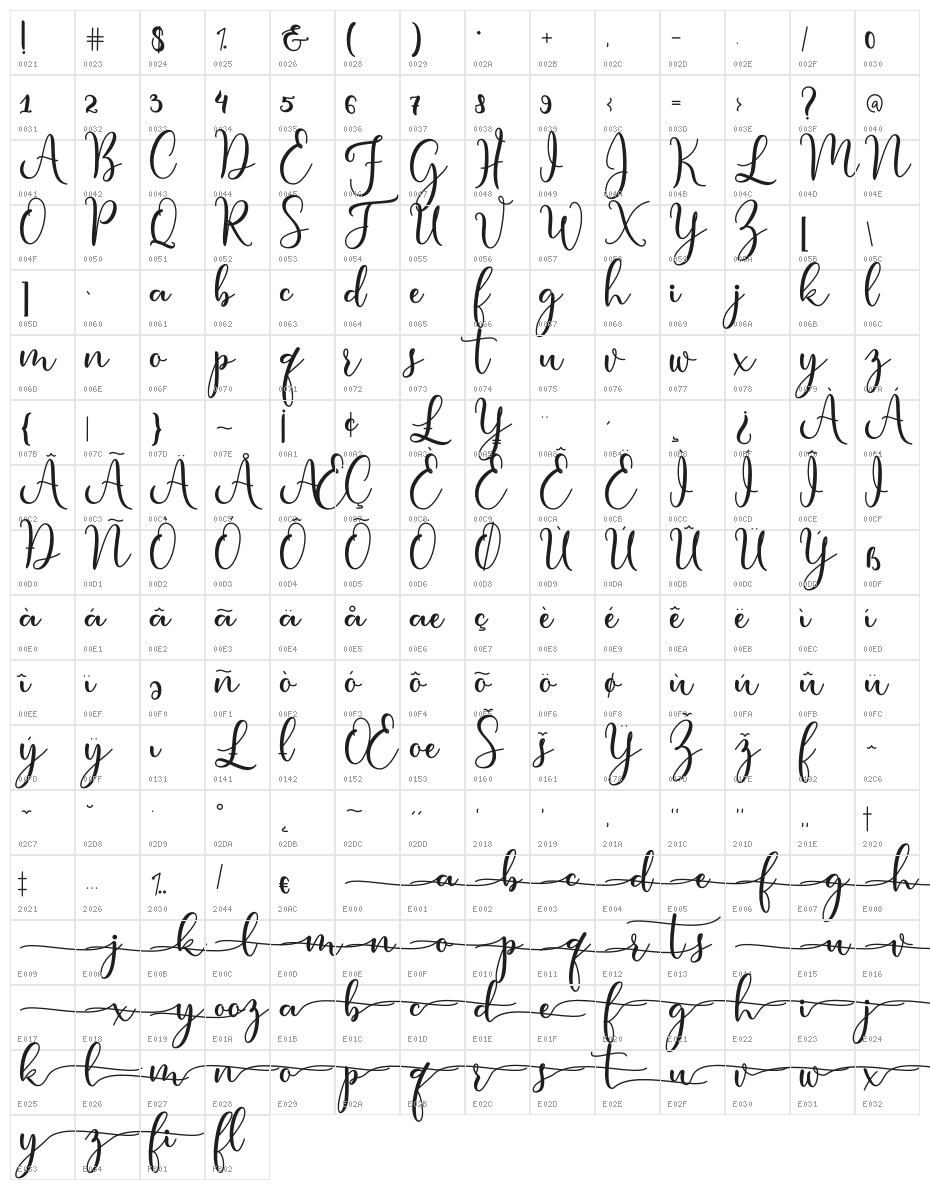 ! # $ % & ( ) * + , - . / 0
0021 0023 0024 0025 0026 0028 0029 002A 002B 002C 002D 002E 002F 0030
1 2 3 4 5 6 7 8 9 { = } ? @
0031 0032 0033 0034 0035 0036 0037 0038 0039 003C 003D 003E 003F 0040
A B C D E F G H I J K L M N
0041 0042 0043 0044 0045 0046 0047 0048 0049 004A 004B 004C 004D 004E
O P Q R S T U V W X Y Z [ \
004F 0050 0051 0052 0053 0054 0055 0056 0057 0058 0059 005A 005B 005C
] ` a b c d e f g h i j k l
005D 0060 0061 0062 0063 0064 0065 0066 0067 0068 0069 006A 006B 006C
m n o p q r s t u v w x y z
006D 006E 006F 0070 0071 0072 0073 0074 0075 0076 0077 0078 0079 007A
{ | } ~ ¡ ¢ £ ¥ ¨ ´ ¸ ¿ À Á
007B 007C 007D 007E 00A1 00A2 00A3 00A5 00A8 00B4 00B8 00BF 00C0 00C1
Â Ã Ä Å Æ Ç È É Ê Ë Ì Í Î Ï
00C2 00C3 00C4 00C5 00C6 00C7 00C8 00C9 00CA 00CB 00CC 00CD 00CE 00CF
Ð Ñ Ò Ó Ô Õ Ö Ø Ù Ú Û Ü Ý ß
00D0 00D1 00D2 00D3 00D4 00D5 00D6 00D8 00D9 00DA 00DB 00DC 00DD 00DF
à á â ã ä å æ ç è é ê ë ì í
00E0 00E1 00E2 00E3 00E4 00E5 00E6 00E7 00E8 00E9 00EA 00EB 00EC 00ED
î ï ə ñ ò ó ô õ ö ø ù ú û ü
00EE 00EF 00F0 00F1 00F2 00F3 00F4 00F5 00F6 00F8 00F9 00FA 00FB 00FC
ý ÿ ı Ł ł Œ œ Š š Ÿ Ž ž ƒ ˆ
00FD 00FF 0131 0141 0142 0152 0153 0160 0161 0178 017D 017E 0192 02C6
ˇ ˘ ˙ ˚ ˛ ˜ ˝ ‘ ’ ‚ “ ” „ †
02C7 02D8 02D9 02DA 02DB 02DC 02DD 2018 2019 201A 201C 201D 201E 2020
‡ … ‰ ⁄ € a b c d e f g h
2021 2026 2030 2044 20AC E000 E001 E002 E003 E004 E005 E006 E007 E008
j k l m n o p q r t s u v
E009 E00A E00B E00C E00D E00E E00F E010 E011 E012 E013 E014 E015 E016
x y oo z a b c d e f g h i j
E017 E018 E019 E01A E01B E01C E01D E01E E01F E020 E021 E022 E023 E024
k l m n o p q r s t u v w x
E025 E026 E027 E028 E029 E02A E02B E02C E02D E02E E02F E030 E031 E032
y z fi fl
E033 E034 FB01 FB02